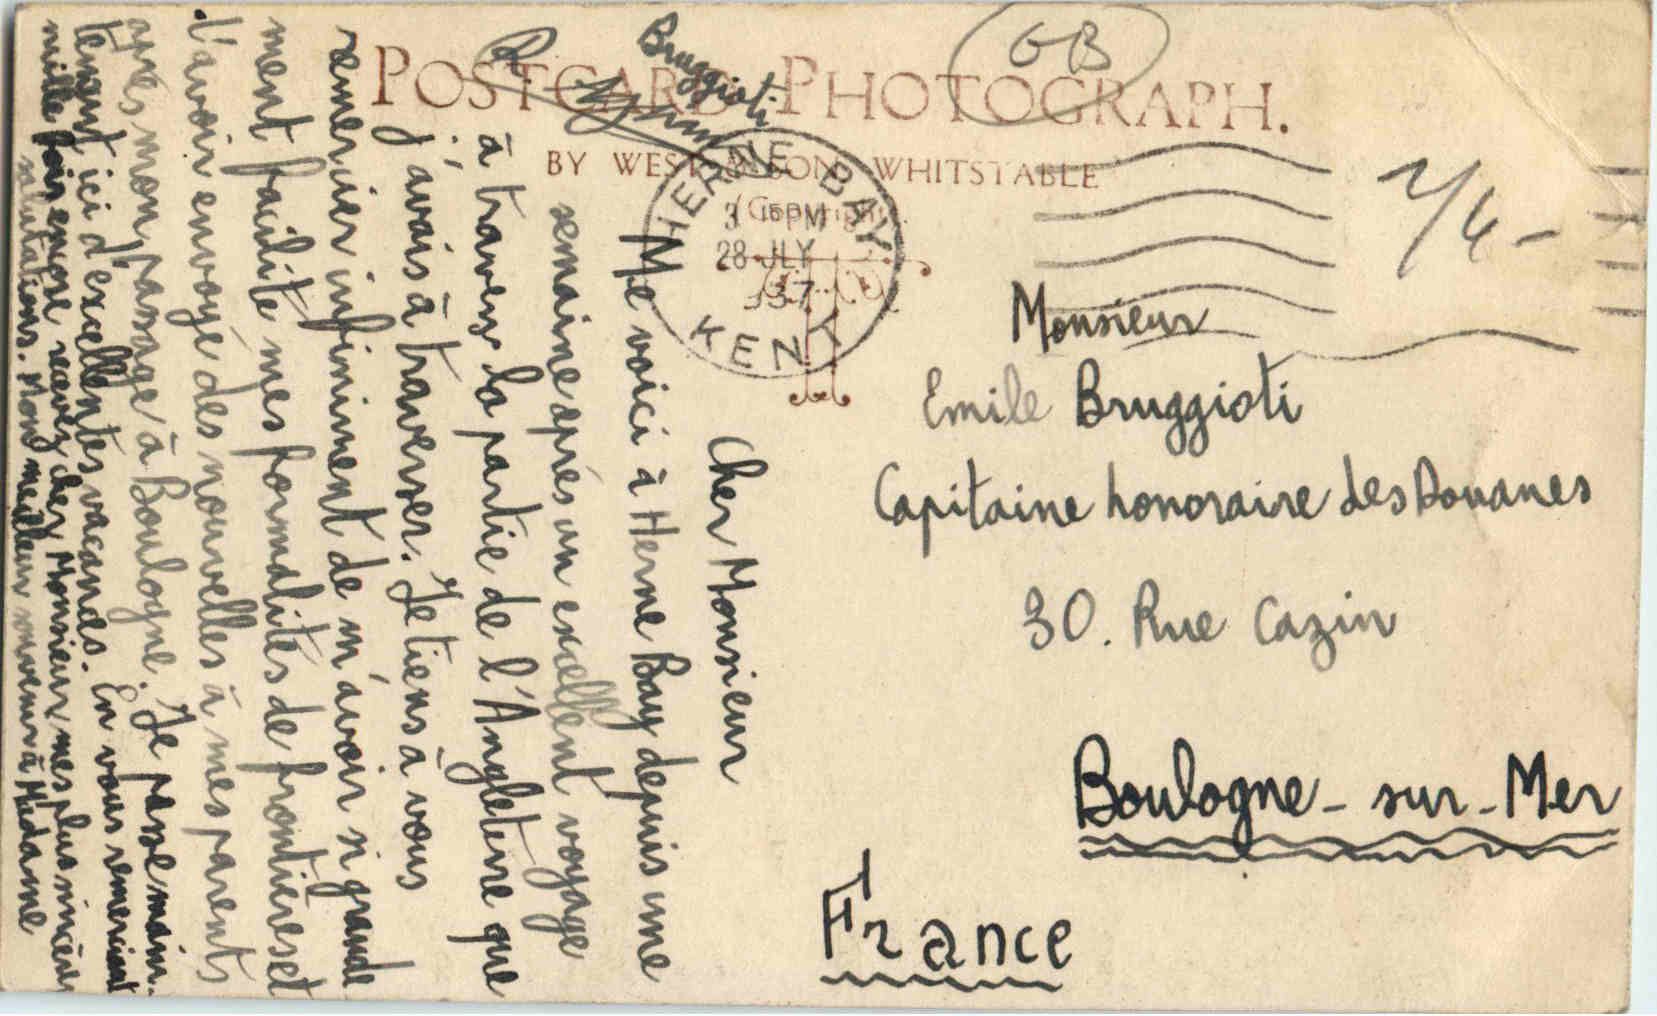 POSTCARD PHOTOGRAPH.
BY WEST & SON WHITSTABLE
(Copyright).
GB
HERNE BAY
3 15 PM
28 JLY
1937
KENT
2/4-
Cher Monsieur
Me voici à Herne Bay depuis une
semaine après un excellent voyage
à travers la partie de l'Angleterre que
j'avais à traverser. Je tiens à vous
remercier infiniment de m'avoir si grande
ment facilité mes formalités de frontière set
l'avoir envoyé des nouvelles à mes parents
après mon passage à Boulogne. Je passe main-
tenant ici d'excellentes vacances. En vous remerciant
mille fois encore recevez cher Monsieur mes plus sincères
salutations. Mon meilleur souvenir à Madame
Bruggioti
Monsieur
Emile Bruggioti
Capitaine honoraire des Douanes
30. Rue Cazin
Boulogne-sur-Mer
France